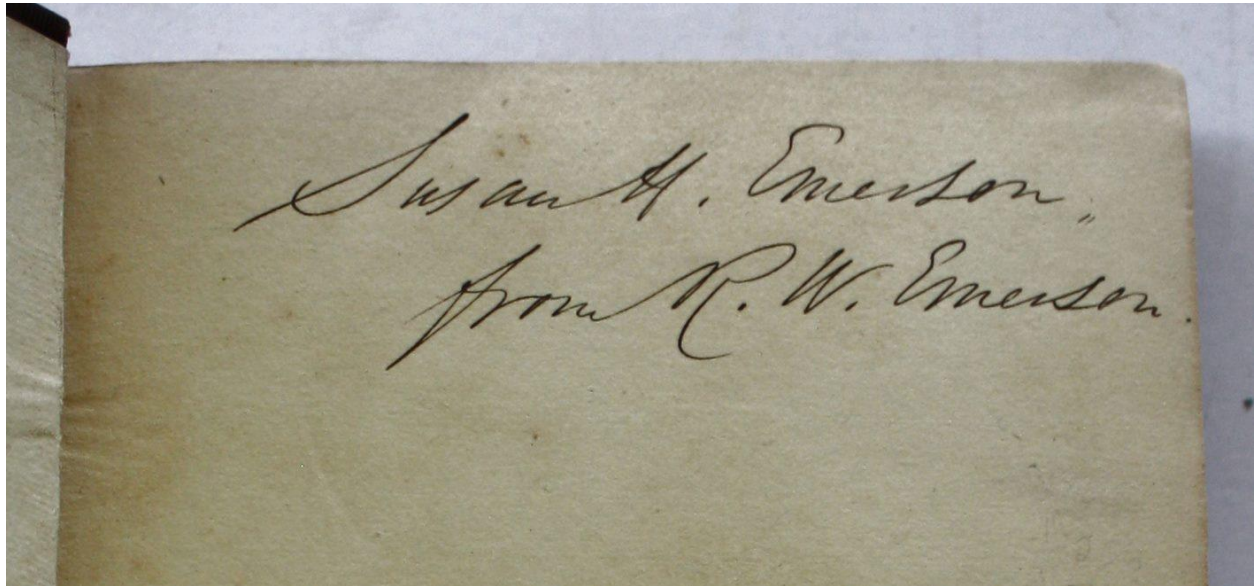 Susan H. Emerson,
from R. W. Emerson.